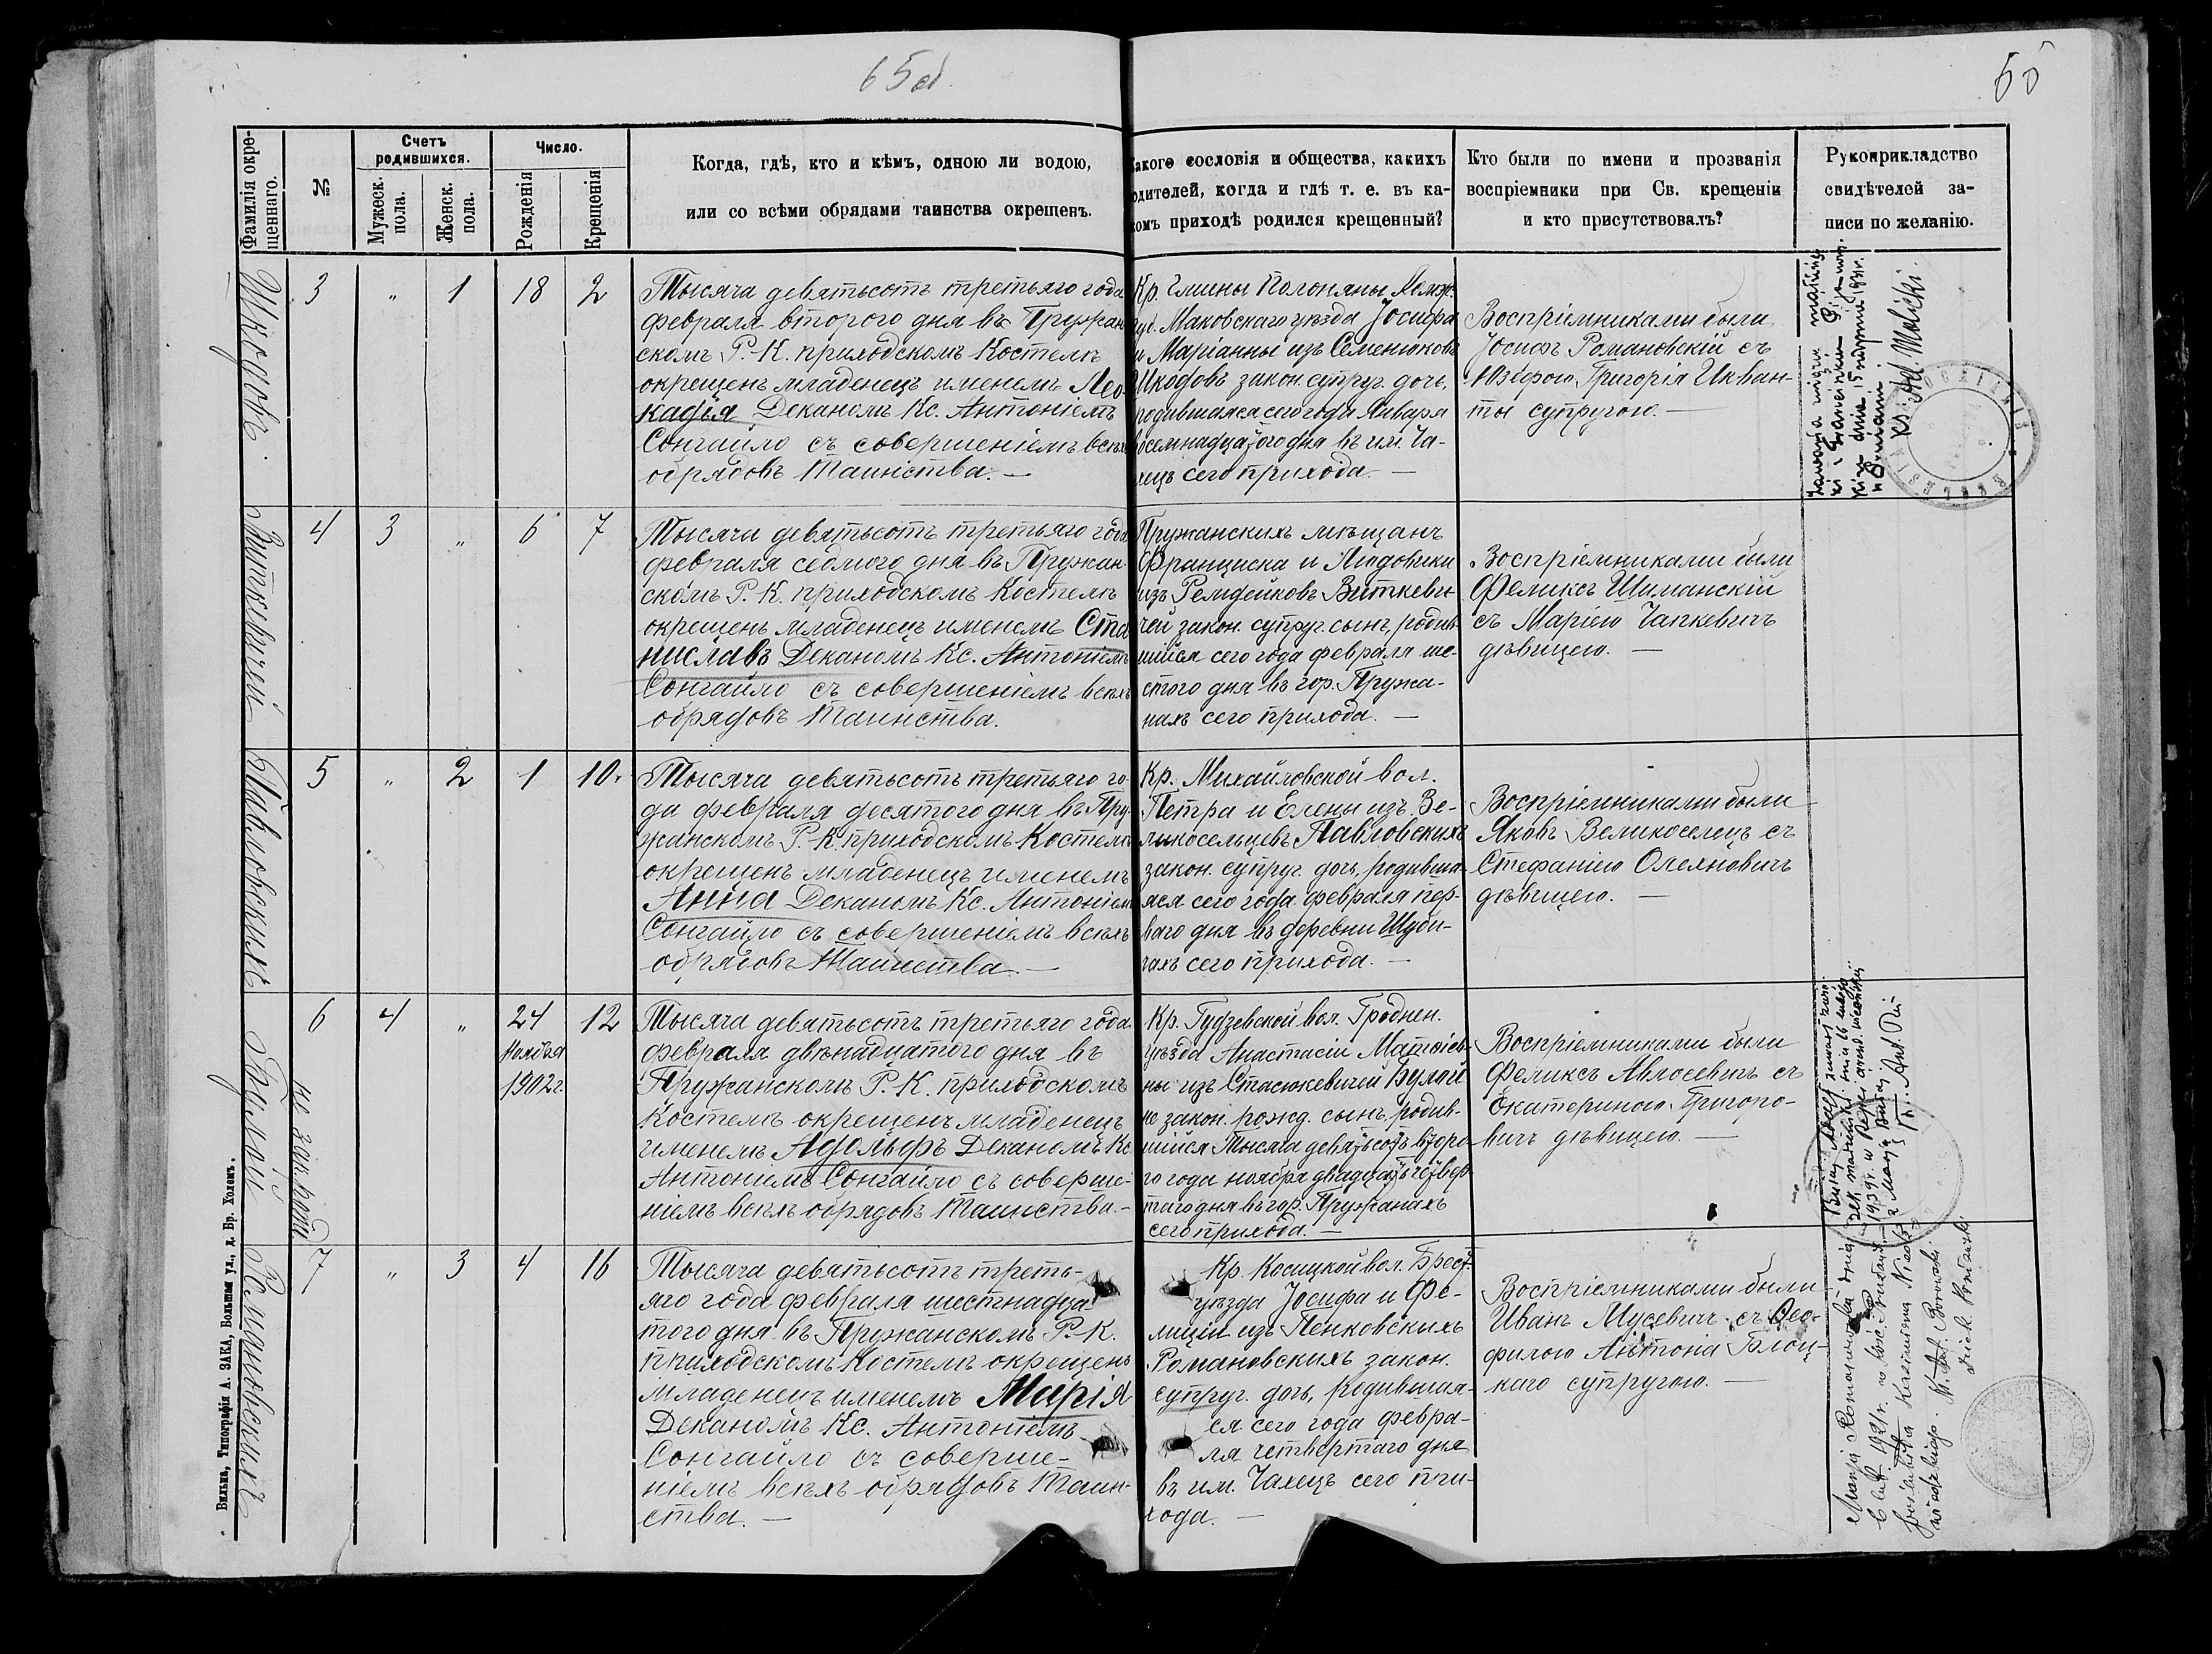 65об
65
Фамилія окре-
щеннаго.
№
Счетъ
родившихся.
Мужеск.
пола.
Женск.
пола.
Число.
Рожденія
Крещенія
Когда, гдѣ, кто и кѣмъ, одною ли водою,
или со всѣми обрядами таинства окрещенъ.
Какого сословія и общества, какихъ
родителей, когда и гдѣ т. е. въ ка-
комъ приходѣ родился крещенный?
Кто были по имени и прозванія
воспріемники при Св. крещеніи
и кто присутствовалъ?
Рукоприкладство
свидѣтелей за-
писи по желанію.
Шкодовъ.
3
"
1
18
2
Тысяча девятьсотъ третьяго года
февраля второго дня въ Пружан
скомъ Р.-К. приходскомъ Костелѣ
окрещенъ младенецъ именемъ Лео-
кадья Деканомъ Кс. Антоніемъ
Сонгайло съ совершеніемъ всѣхъ
обрядовъ Таинства. —
Кр. гмины
Маковскаго уѣзда Іосифа
и Маріанны изъ Семенюковъ
Шкодовъ закон. супруг. дочь,
родившаяся сего года Января
восемнадцатого дня въ им. Ча-
хецъ сего прихода. —
Воспріемниками были
Іосифъ Романовскій съ
Юзефою Григорія Икван-
ты супругою. —
ks. Ad. Molicki.
Виткевичей
4
3
"
6
7
Тысяча девятьсотъ третьяго года
февраля седмого дня въ Пружан-
скомъ Р. К. приходскомъ Костелѣ
окрещенъ младенецъ именемъ Ста
ниславъ Деканомъ Кс. Антоніемъ
Сонгайло съ совершеніемъ всѣхъ
обрядовъ Таинства.
Пружанскихъ мѣщанъ
Франциска и Людовики
изъ Ремдейковъ Виткеви-
чей закон. супруг. сынъ, родив-
шійся сего года февраля ше-
стого дня въ гор. Пружа-
нахъ сего прихода. —
Воспріемниками были
Феликсъ Шиманскій
съ Маріею Чапкевичъ
дѣвицею. —
Павловскихъ
5
"
2
1
10.
Тысяча девятьсотъ третьяго го-
да февраля десятого дня въ Пру-
жанскомъ Р.-К. приходскомъ Костелѣ
окрещенъ младенецъ именемъ
Анна Деканомъ Кс. Антоніемъ
Сонгайло съ совершеніемъ всѣхъ
обрядовъ Таинства. —
Кр. Михайловской вол.
Петра и Елены изъ Ве-
ликосельцевъ Павловскихъ
закон. супруг. дочь, родивша-
яся сего года февраля пер-
ваго дня въ деревни Шуби-
чахъ сего прихода. —
Воспріемниками были
Яковъ Великоселецъ съ
Стефаніею Олехновичъ
дѣвицею. —
Булай
не законный
6
4
"
24
Ноября
1902г.
12
Тысяча девятьсотъ третьяго года
февраля двѣнадцатого дня въ
Пружанскомъ Р.-К. приходскомъ
Костелѣ окрещенъ младенецъ
именемъ Адольфъ Деканомъ Кс.
Антоніемъ Сонгайло съ соверше-
ніемъ всѣхъ обрядовъ Таинства. —
Кр. Гудзевской вол. Гроднен.
уѣзда Анастасіи Матвіев-
ны изъ Стасюкевичей Булай
не закон. рожд. сынъ, родив-
шійся Тысяча девятьсотъ второ-
го года ноября двадцать четвер-
таго дня въ гор. Пружанахъ
сего прихода. —
Воспріемниками были
Феликсъ Авлосевичъ съ
Екатериною Григоро-
вичъ дѣвицею. —
Романовскихъ
7
"
3
4
16
Тысяча девятьсотъ треть-
яго года февраля шестнадца-
того дня въ Пружанскомъ Р.-К.
приходскомъ Костелѣ окрещенъ
младенецъ именемъ Марія
Деканомъ Кс. Антоніемъ
Сонгайло съ соверше-
ніемъ всѣхъ обрядовъ Таин-
ства. —
Кр. Косицкой вол. Брест.
уѣзда Іосифа и Фе-
лиціи изъ Пенковскихъ
Романовскихъ закон.
супруг. дочь, родившая-
ся сего года февра-
ля четвертаго дня
въ им. Чахецъ сего при-
хода. —
Воспріемниками были
Иванъ Мусевичъ съ Ѳео-
филою Антонія Блоц-
каго супругою. —
Marja Romanowska dnia
Вильна, Типографія А. ЗАКА, Большая ул., д. Бр. Холемъ.